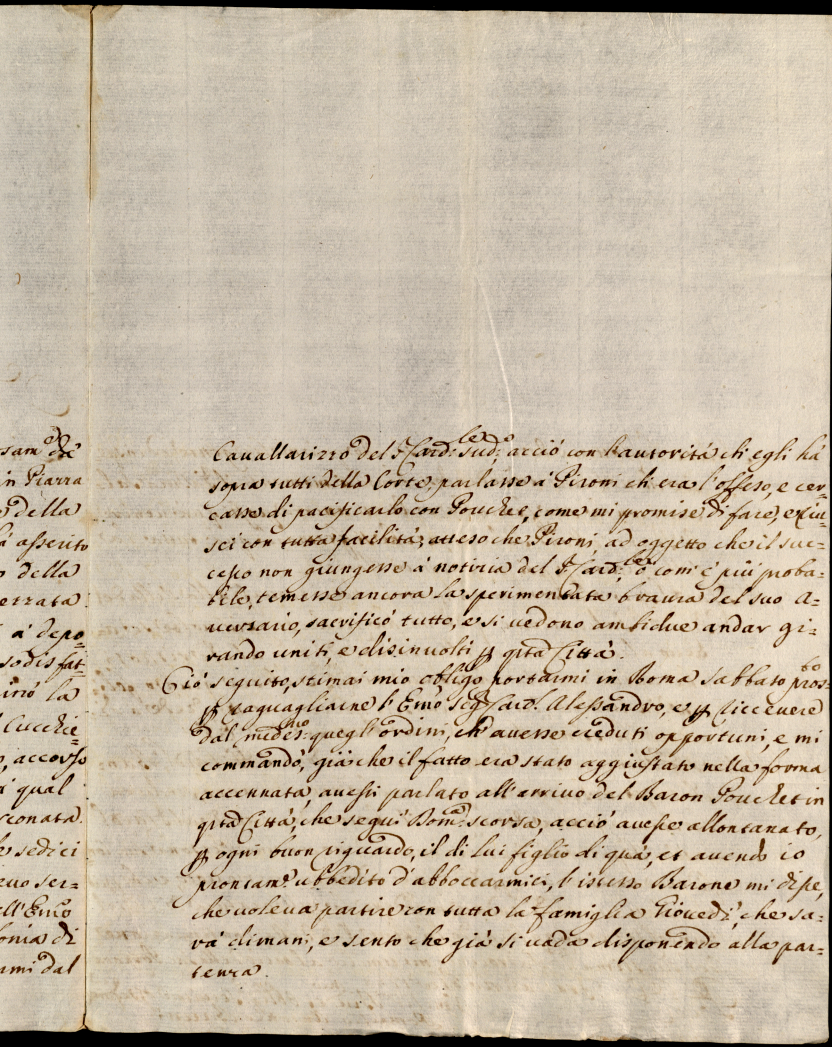 sam.te
in Piazza
della
à asserito
della
errata.
à depo-
sodisfat-
inió la
Cucchie-
accorso
à qual
sconata.
sedici
evo ser=
ll'Emo
onia di
rmi dal
Cavallarizzo del S.r Card.le sud.o acciò con l'autorità ch'egli hà
sopra tutti della Corte parlasse à Pironi ch'era l'offeso, e cer=
casse di pacificarlo con Pouchet, come mi promise di fare, e riu=
sci con tutta facilità, atteso che Pironi, ad oggetto che il suc=
cesso non giungesse à notizia del S.r Card.le, ò com'è più proba=
bile, temesse ancora la sperimentata bravura del suo A=
versario, sacrificò tutto, e si vedono ambidue andar gi=
rando uniti, e disinvolti p qsta Città.
Ciò seguito, stimai mio obligo portarmi in Roma sabbato pros.to
p raguagliarne l'Emo Sig.r Card.l Alessandro, e p riccevere
dal medes.mo quegl'ordini, ch'avesse creduti opportuni, e mi
commandò, già che il fatto era stato aggiustato nella forma
accennata, avessi parlato all'arrivo del Baron Pouchet in
qsta Città, che seguì Dom.ca scorsa, acciò avesse allontanato,
p ogni buon riguardo, il di lui figlio di quà, et avendo io
prontam.te ubbedito d'abboccarmici, l'istesso Barone mi disse,
che voleva partire con tutta la famiglia Giovedì, che sa=
rà dimani, e sento che già si vada disponendo alla par=
tenza.